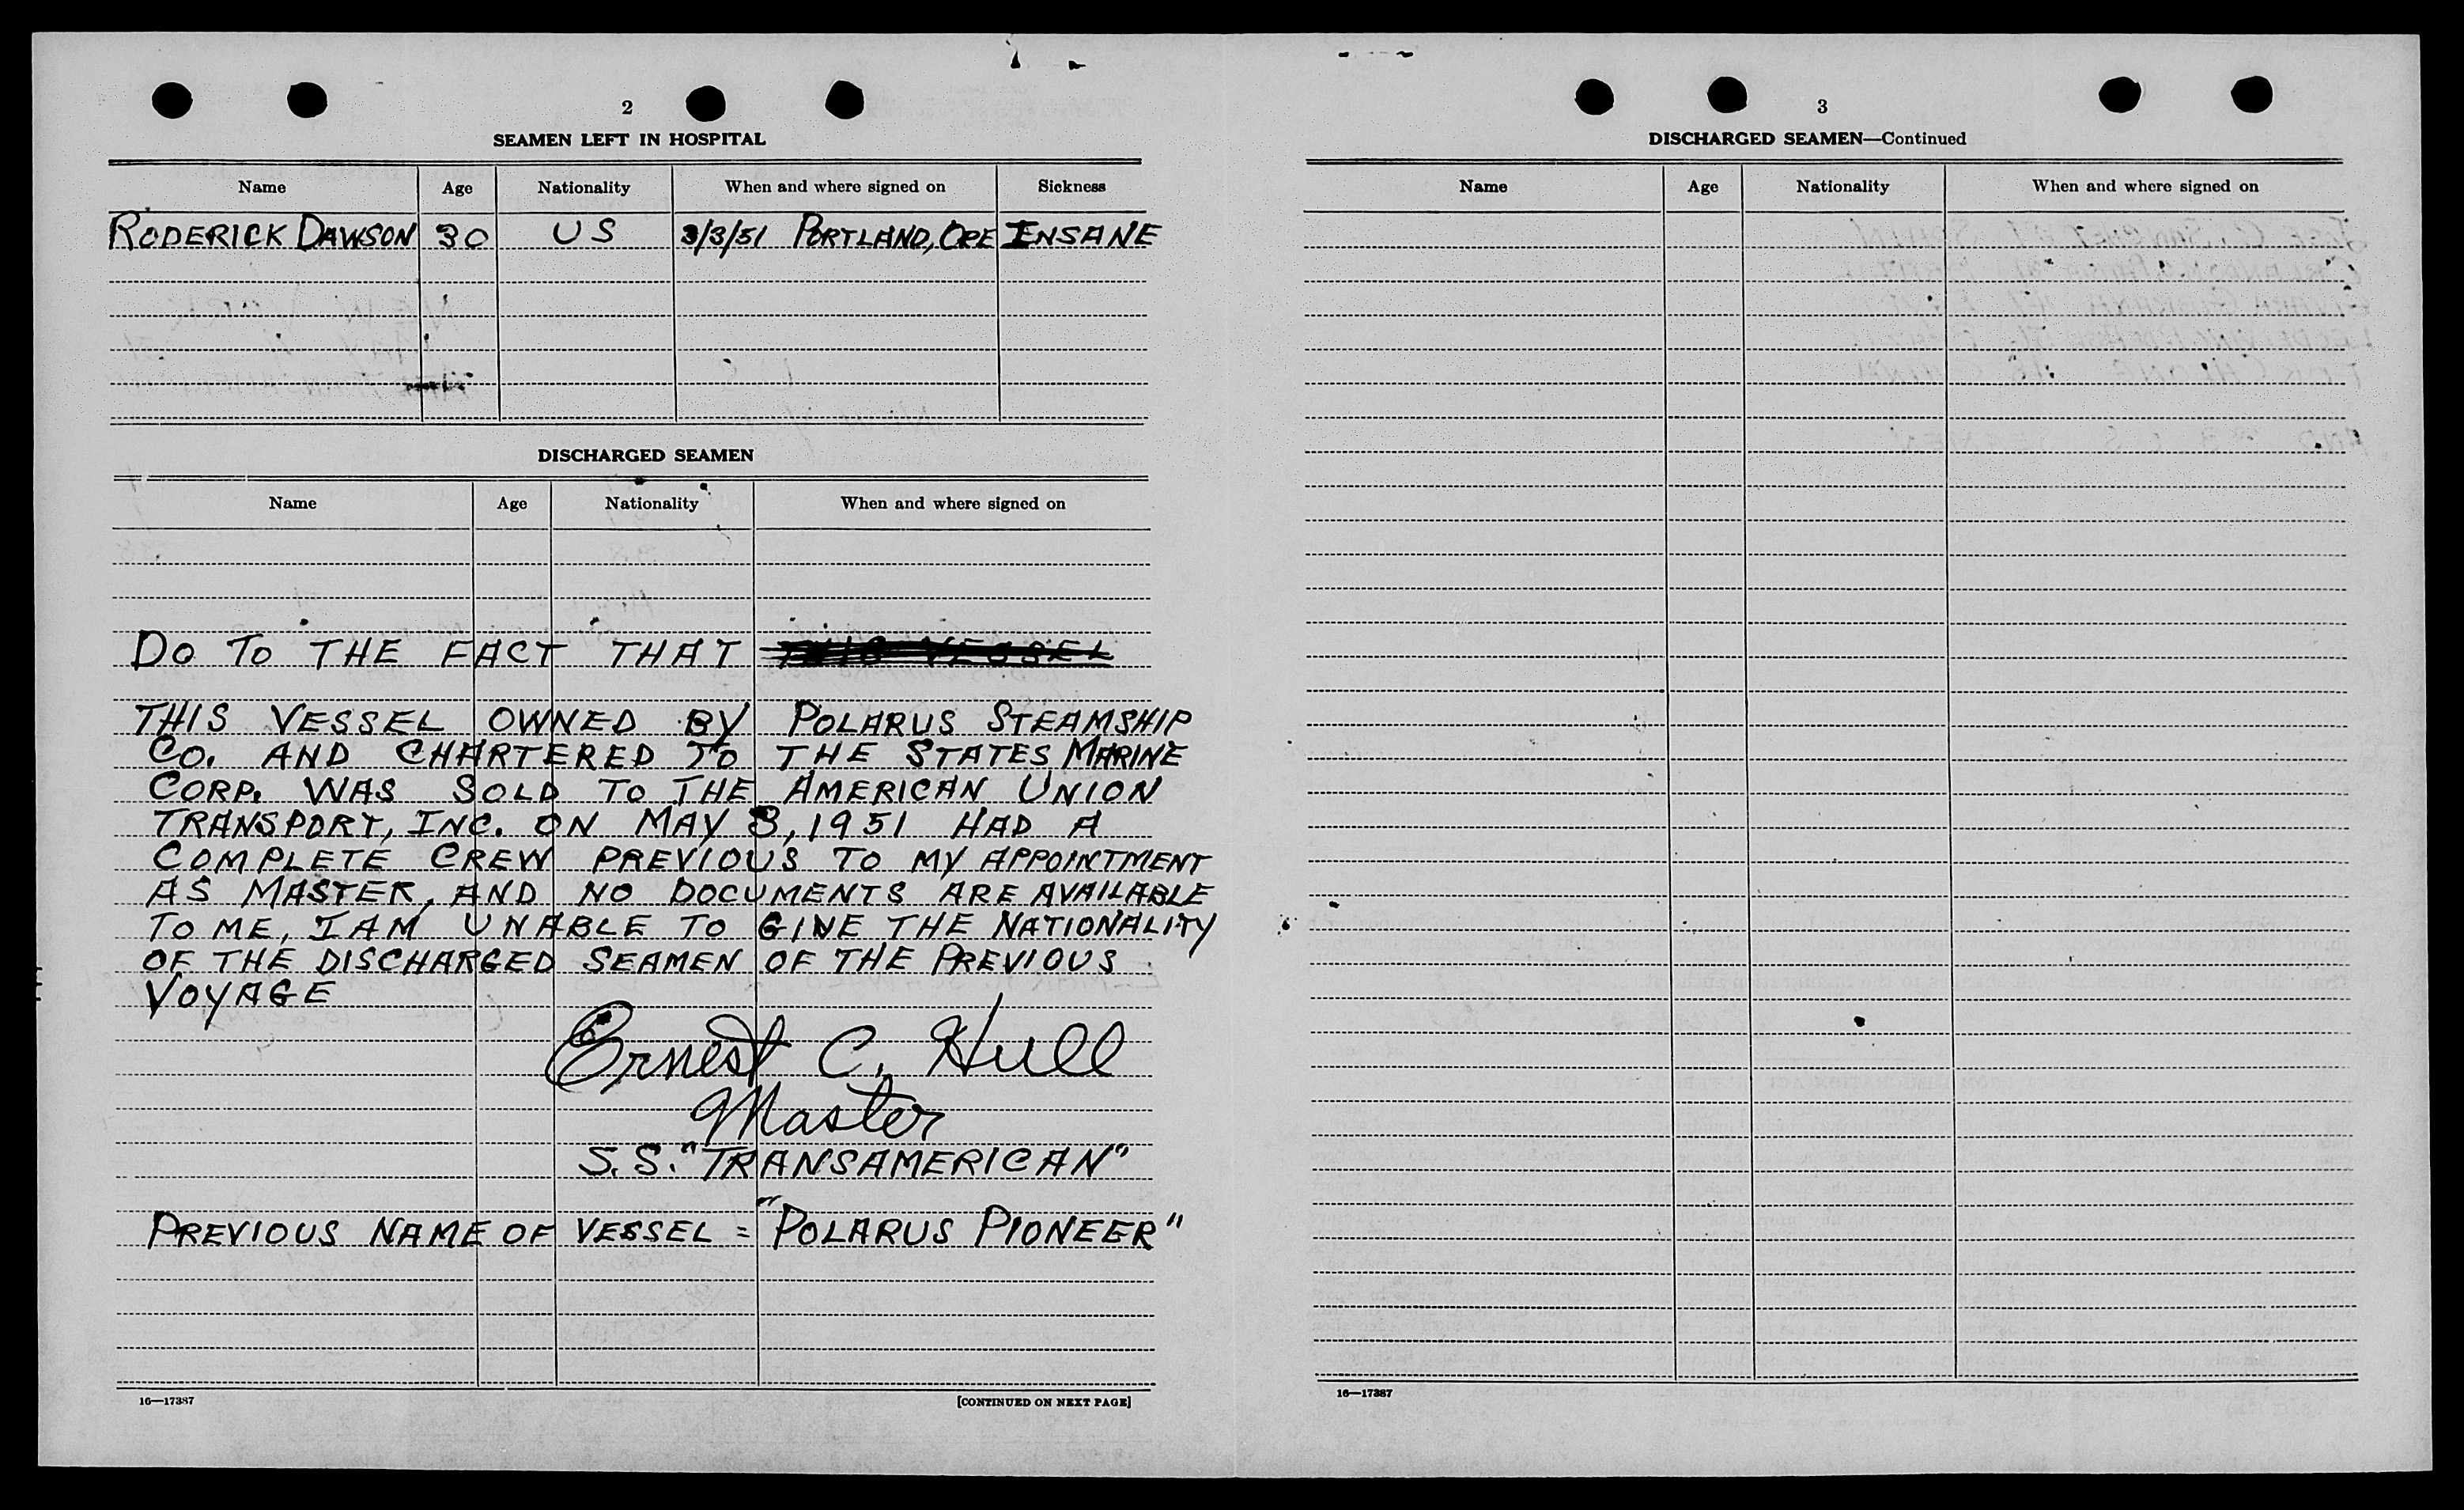 2
SEAMEN LEFT IN HOSPITAL
Name Age Nationality When and where signed on Sickness
RODERICK DAWSON 30 US 3/3/51 PORTLAND, ORE INSANE
DISCHARGED SEAMEN
Name Age Nationality When and where signed on
DO TO THE FACT THAT THIS VESSEL
THIS VESSEL OWNED BY POLARUS STEAMSHIP
CO. AND CHARTERED TO THE STATES MARINE
CORP. WAS SOLD TO THE AMERICAN UNION
TRANSPORT, INC. ON MAY 8, 1951 HAD A
COMPLETE CREW PREVIOUS TO MY APPOINTMENT
AS MASTER, AND NO DOCUMENTS ARE AVAILABLE
TO ME, I AM UNABLE TO GIVE THE NATIONALITY
OF THE DISCHARGED SEAMEN OF THE PREVIOUS
VOYAGE
Ernest C. Hull
Master
S.S. "TRANSAMERICAN"
PREVIOUS NAME OF VESSEL = "POLARUS PIONEER"
16—17387 [CONTINUED ON NEXT PAGE]
3
DISCHARGED SEAMEN—Continued
Name Age Nationality When and where signed on
16—17387